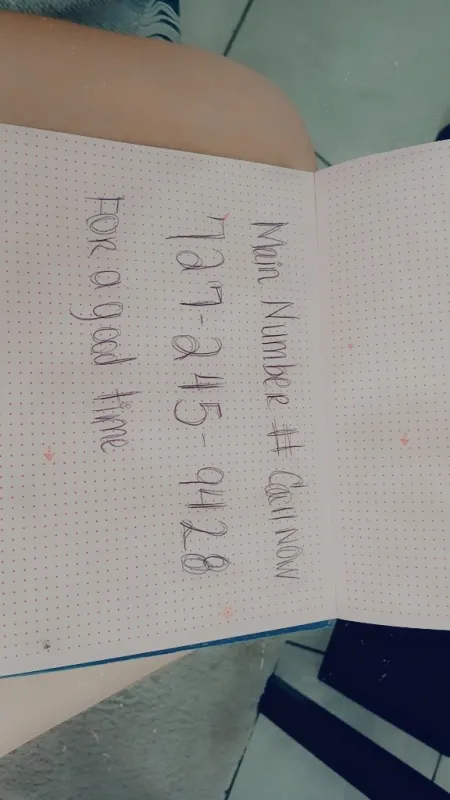 Main Number # Call Now
727-245-9428
For a good time